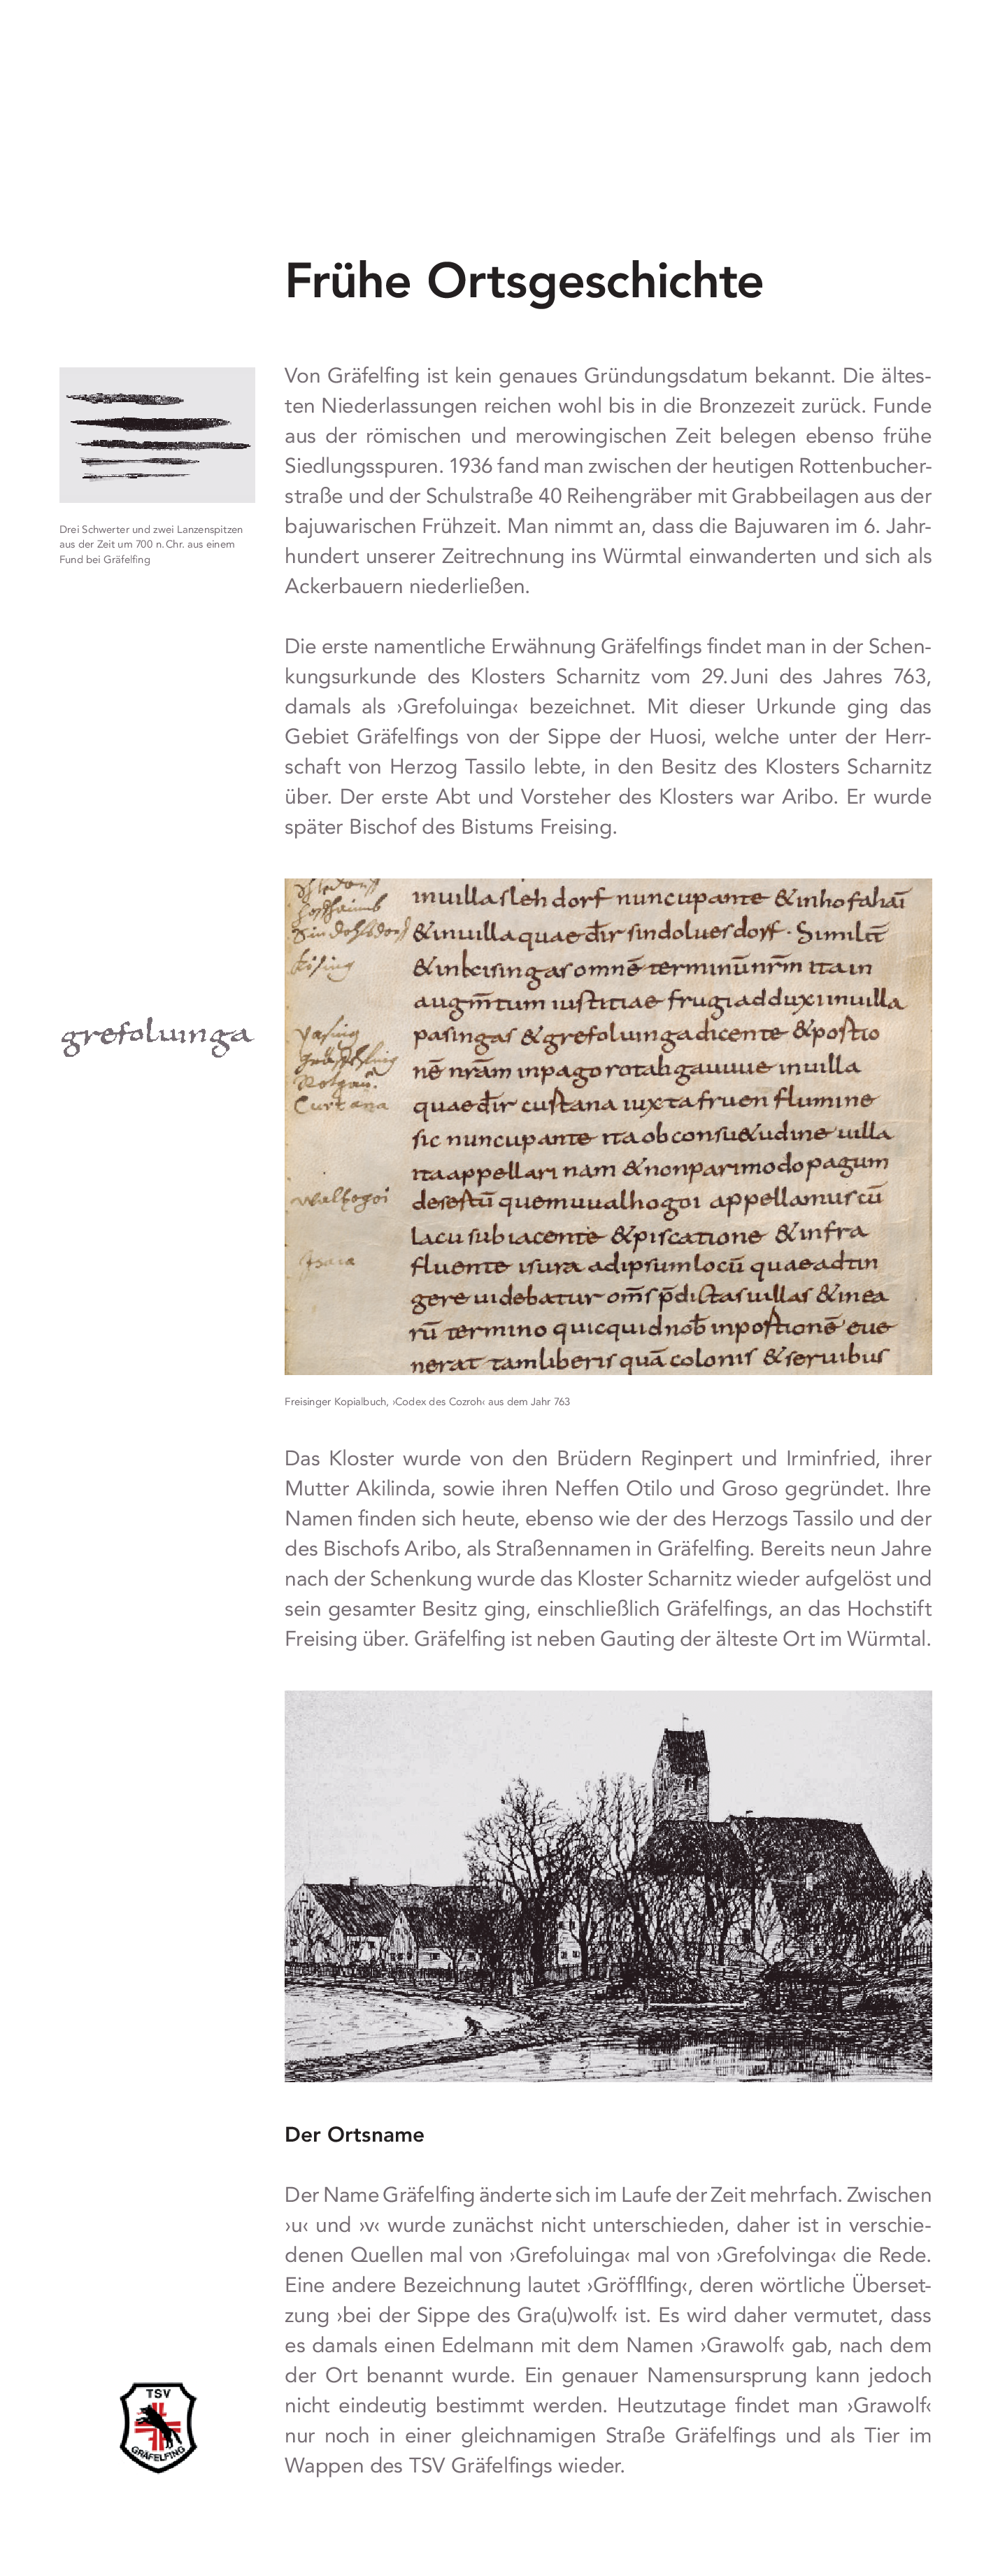 Frühe Ortsgeschichte
Von Gräfelfing ist kein genaues Gründungsdatum bekannt. Die ältes-
ten Niederlassungen reichen wohl bis in die Bronzezeit zurück. Funde
aus der römischen und merowingischen Zeit belegen ebenso frühe
Siedlungsspuren. 1936 fand man zwischen der heutigen Rottenbucher-
straße und der Schulstraße 40 Reihengräber mit Grabbeilagen aus der
bajuwarischen Frühzeit. Man nimmt an, dass die Bajuwaren im 6. Jahr-
hundert unserer Zeitrechnung ins Würmtal einwanderten und sich als
Ackerbauern niederließen.
Drei Schwerter und zwei Lanzenspitzen
aus der Zeit um 700 n. Chr. aus einem
Fund bei Gräfelfing
Die erste namentliche Erwähnung Gräfelfings findet man in der Schen-
kungsurkunde des Klosters Scharnitz vom 29. Juni des Jahres 763,
damals als ›Grefoluinga‹ bezeichnet. Mit dieser Urkunde ging das
Gebiet Gräfelfings von der Sippe der Huosi, welche unter der Herr-
schaft von Herzog Tassilo lebte, in den Besitz des Klosters Scharnitz
über. Der erste Abt und Vorsteher des Klosters war Aribo. Er wurde
später Bischof des Bistums Freising.
inuilla slehdorf nuncupante & inhofahaī
& inuilla quae dr̄ sindoluesdorf · Similit̄
& inkisingas omnē terminū nr̄m ita in
augm̄tum iustitiae frugi adduxi inuilla
pasingas & grefoluinga dicente & postio
nē nrām inpago rotahgauuue inuilla
quae dr̄ custana iuxta fruen flumine
sic nuncupante ita ob consu&udine uilla
ita appellari nam & non pari modo pagum
desertū quem uualhogoi appellamus cū
lacu subiacente & piscatione & infra
fluente isura ad ipsum locū quae adtin
gere uidebatur om̄s p̄dictas uillas & in ea
rū termino quicquid nob̄ inportionē eue
nerat tam liberis quā colonis & seruibus
Pasing
Curtana
walhogoi
Isara
grefoluinga
Freisinger Kopialbuch, ›Codex des Cozroh‹ aus dem Jahr 763
Das Kloster wurde von den Brüdern Reginpert und Irminfried, ihrer
Mutter Akilinda, sowie ihren Neffen Otilo und Groso gegründet. Ihre
Namen finden sich heute, ebenso wie der des Herzogs Tassilo und der
des Bischofs Aribo, als Straßennamen in Gräfelfing. Bereits neun Jahre
nach der Schenkung wurde das Kloster Scharnitz wieder aufgelöst und
sein gesamter Besitz ging, einschließlich Gräfelfings, an das Hochstift
Freising über. Gräfelfing ist neben Gauting der älteste Ort im Würmtal.
Der Ortsname
Der Name Gräfelfing änderte sich im Laufe der Zeit mehrfach. Zwischen
›u‹ und ›v‹ wurde zunächst nicht unterschieden, daher ist in verschie-
denen Quellen mal von ›Grefoluinga‹ mal von ›Grefolvinga‹ die Rede.
Eine andere Bezeichnung lautet ›Gröfflfing‹, deren wörtliche Überset-
zung ›bei der Sippe des Gra(u)wolf‹ ist. Es wird daher vermutet, dass
es damals einen Edelmann mit dem Namen ›Grawolf‹ gab, nach dem
der Ort benannt wurde. Ein genauer Namensursprung kann jedoch
nicht eindeutig bestimmt werden. Heutzutage findet man ›Grawolf‹
nur noch in einer gleichnamigen Straße Gräfelfings und als Tier im
Wappen des TSV Gräfelfings wieder.
TSV
GRÄFELFING